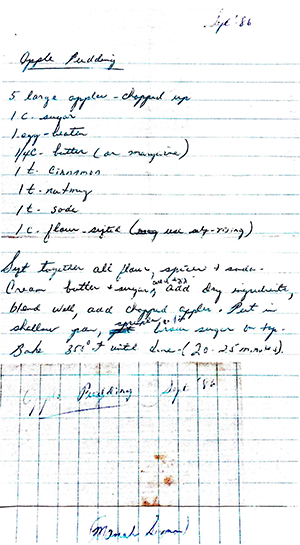 Sept '86
Apple Pudding
5 large apples - chopped up
1 c. sugar
1 egg - beaten
1/4 c. butter (or margarine)
1 t. cinnamon
1 t. nutmeg
1 t. soda
1 c. flour - sifted (may use self-rising)
Sift together all flour, spices + soda.
Cream butter + sugar, add egg, add dry ingredients,
blend well, add chopped apples. Put in
shallow pan, sprinkle brown sugar on top.
Bake 350° until done - (20-25 minutes).
Apple Pudding Sept '86